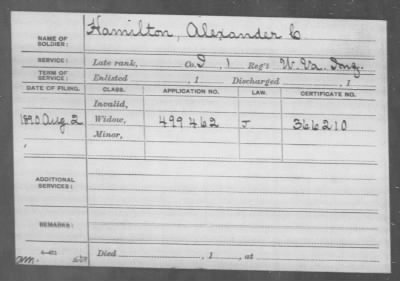 NAME OF SOLDIER: Hamilton, Alexander C
SERVICE: Late rank, Co. I, 1 Reg't W. Va. Inf.
TERM OF SERVICE: Enlisted , 1 Discharged , 1
DATE OF FILING. CLASS. APPLICATION NO. LAW. CERTIFICATE NO.
Invalid,
1890 Aug. 2 Widow, 499462 J 366210
Minor,
ADDITIONAL SERVICES:
REMARKS:
Died , 1 , at